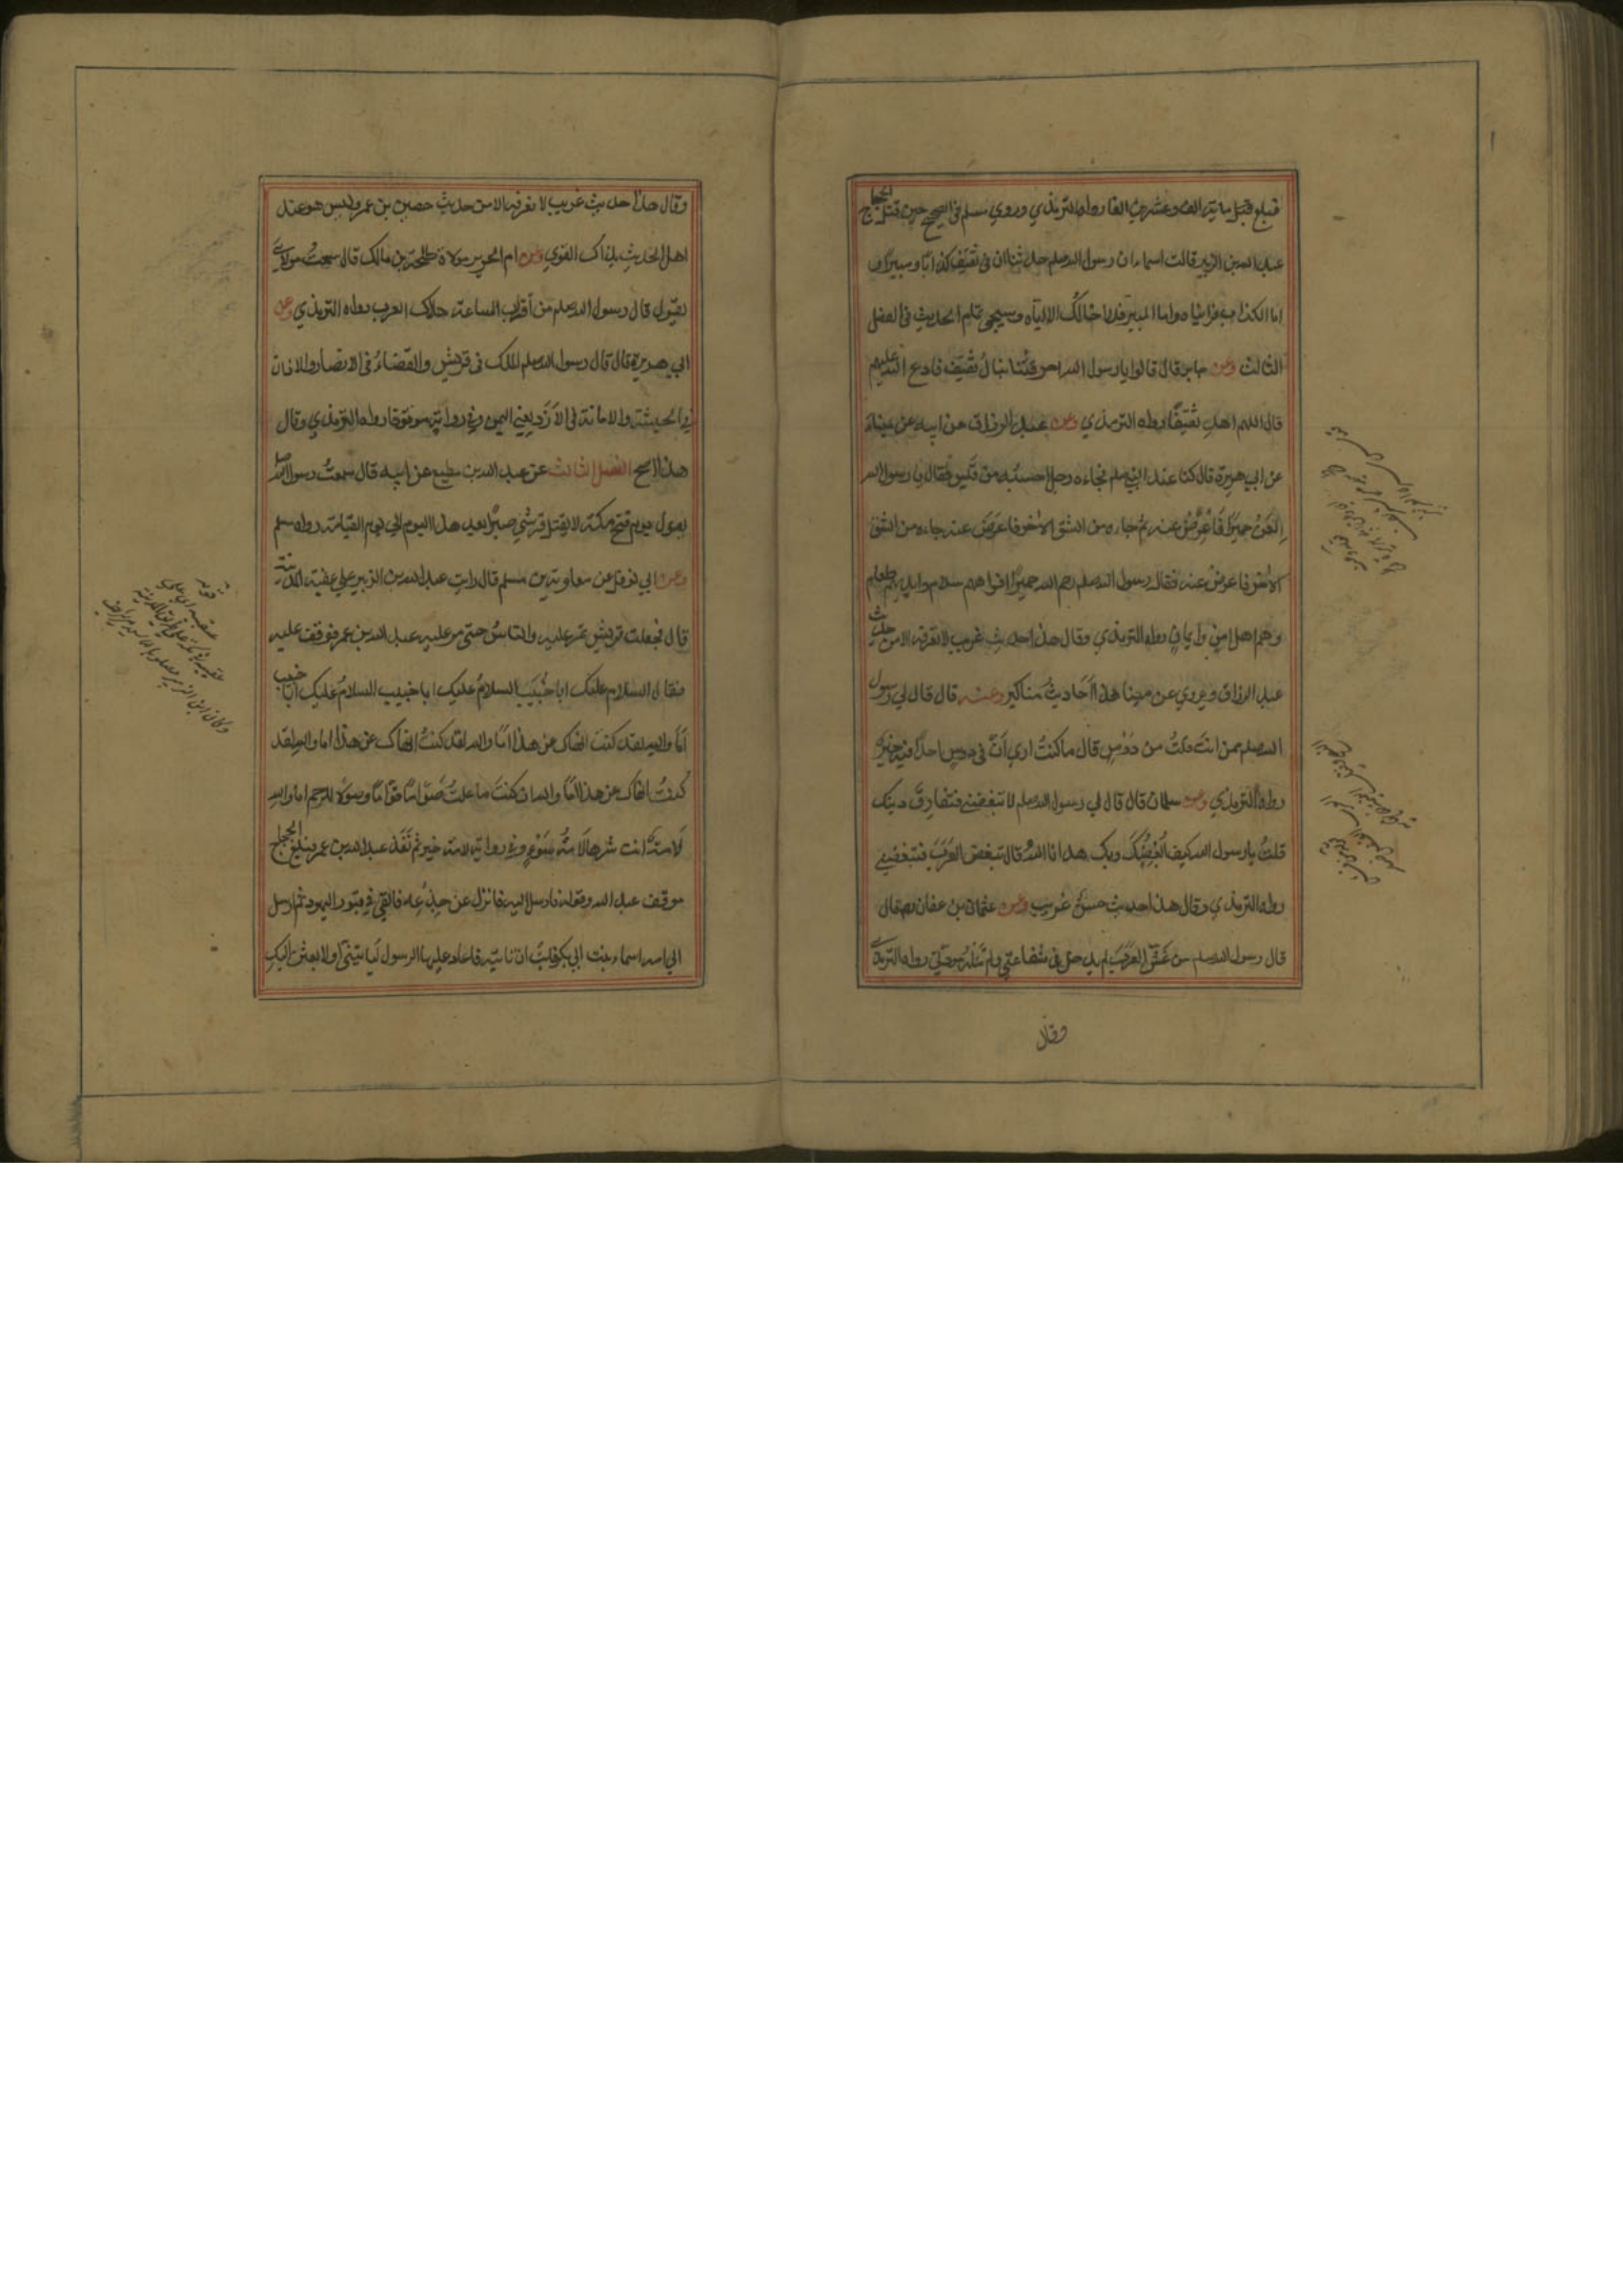 فبلغ قتيل مائة الف وعشرين الفا رواه الترمذي وروي مسلم في الصحيح حين قتل الحجاج
عبد الله بن الزبير قالت اسماء ان رسول الله صلعم حدثنا ان في ثقيف كذابا ومبيرا ف
اما الكذاب فرايناه واما المبير فلا اخالك الا اياه وسيجي تمام الحديث في الفصل
الثالث وعن جابر قال قالوا يا رسول الله احرقتنا نبال ثقيف فادع الله عليهم
قال اللهم اهد ثقيفا رواه الترمذي وعن عبد الرزاق عن ابيه عن ميناء
عن ابي هريرة قال كنا عند النبي صلعم فجاءه رجل احسبه من قيس فقال يا رسول الله
العن حميرا فاعرض عنه ثم جاءه من الشق الاخر فاعرض عنه جاءه من الشق
الاخر فاعرض عنه فقال رسول الله صلعم رحم الله حميرا افواههم سلام وايديهم طعام
وهم اهل امن وايمان رواه الترمذي وقال هذا حديث غريب لا نعرفه الا من حديث
عبد الرزاق ويروي عن مينا هذا احاديث مناكير وعنه قال قال لي رسول
الله صلعم ممن انت قلت من دوس قال ما كنت اري ان في دوس احدا فيه خير
رواه الترمذي وعن سلمان قال قال لي رسول الله صلعم لا تبغضني فتفارق دينك
قلت يا رسول الله كيف ابغضك وبك هدانا الله قال تبغض العرب فتبغضني
رواه الترمذي وقال هذا حديث حسن غريب وعن عثمان بن عفان رض قال
قال رسول الله صلعم من غش العرب لم يدخل في شفاعتي ولم تنله مودتي رواه الترمذي
وقال
وقال هذا حديث غريب لا نعرفه الا من حديث حصين بن عمر وليس هو عند
اهل الحديث بذاك القوي وعن ام الحرير مولاة طلحة بن مالك قال سمعت مولاي
يقول قال رسول الله صلعم من اقتراب الساعة هلاك العرب رواه الترمذي وعن
ابي هريرة قال قال رسول الله صلعم الملك في قريش والقضاء في الانصار والاذان
في الحبشة والامانة في الازد يعني اليمن وفي رواية موقوفا رواه الترمذي وقال
هذا اصح الفصل الثالث عن عبد الله بن مطيع عن ابيه قال سمعت رسول الله صلعم
يقول يوم فتح مكة لا يقتل قرشي صبرا بعد هذا اليوم الي يوم القيامة رواه مسلم
وعن ابي نوفل عن معاوية بن مسلم قال رايت عبد الله بن الزبير علي عقبة المدينة
قال فجعلت قريش تمر عليه والناس حتي مر عليه عبد الله بن عمر فوقف عليه
فقال السلام عليك ابا خبيب السلام عليك ابا خبيب السلام عليك ابا خبيب
اما والله لقد كنت انهاك عن هذا اما والله لقد كنت انهاك عن هذا اما والله لقد
كنت انهاك عن هذا اما والله ان كنت ما علت صواما قواما وصولا للرحم اما والله
لامة انت شرها لامة سوء وفي رواية لامة خير ثم نفذ عبد الله بن عمر فبلغ الحجاج
موقف عبد الله وقوله فارسل اليه فانزل عن جذعه فالقي في قبور اليهود ثم ارسل
الي امه اسماء بنت ابي بكر فابت ان تاتيه فاعاد عليها الرسول لتاتيني او لابعثن اليك